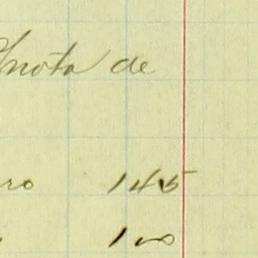 nota de
ro 145
100